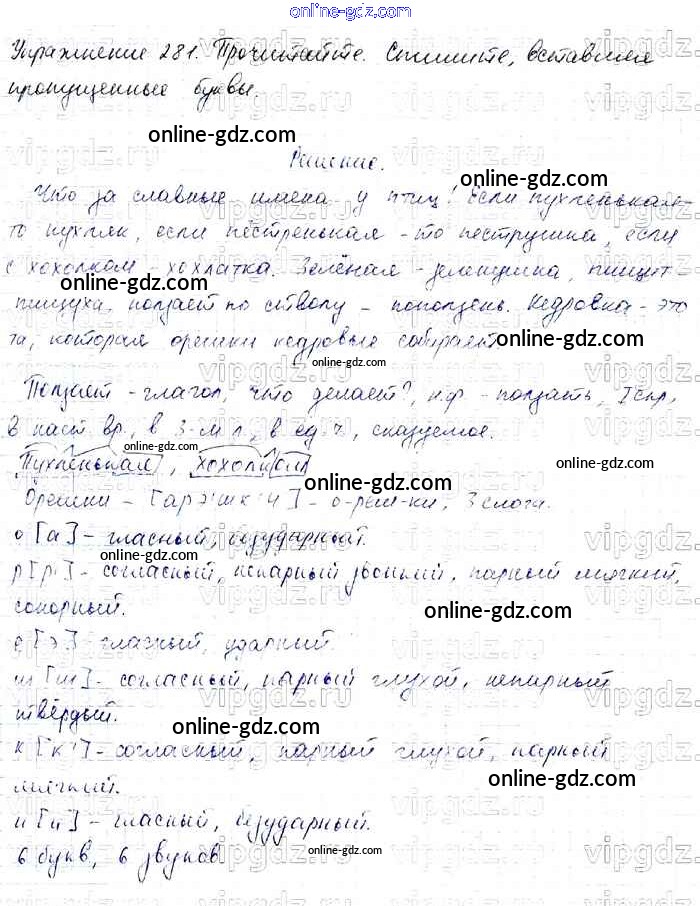 online-gdz.com
Упражнение 281. Прочитайте. Спишите, вставляя
пропущенные буквы.
online-gdz.com
Решение.
online-gdz.com
Что за славные имена у птиц! Если пухленькая-
то пухляк, если пёстренькая - то пеструшка, если
с хохолком - хохлатка. Зелёная - зеленушка, пищит -
online-gdz.com
пищуха, ползает по стволу - поползень. Кедровка - это
online-gdz.com
та, которая орешки кедровые собирает.
online-gdz.com
Ползает - глагол, что делает?, н.ф. - ползать, I спр.,
online-gdz.com
в наст. вр., в 3-м л., в ед. ч., сказуемое.
online-gdz.com
Пухленькая, хохолком
online-gdz.com
online-gdz.com
Орешки - [арэшк'и] - о-реш-ки, 3 слога.
о [а] - гласный, безударный.
online-gdz.com
online-gdz.com
р [р'] - согласный, непарный звонкий, парный мягкий,
сонорный.
online-gdz.com
е [э] - гласный, ударный.
online-gdz.com
ш [ш] - согласный, парный глухой, непарный
твёрдый.
online-gdz.com
к [к'] - согласный, парный глухой, парный
мягкий.
online-gdz.com
и [и] - гласный, безударный.
6 букв, 6 звуков
online-gdz.com
online-gdz.com